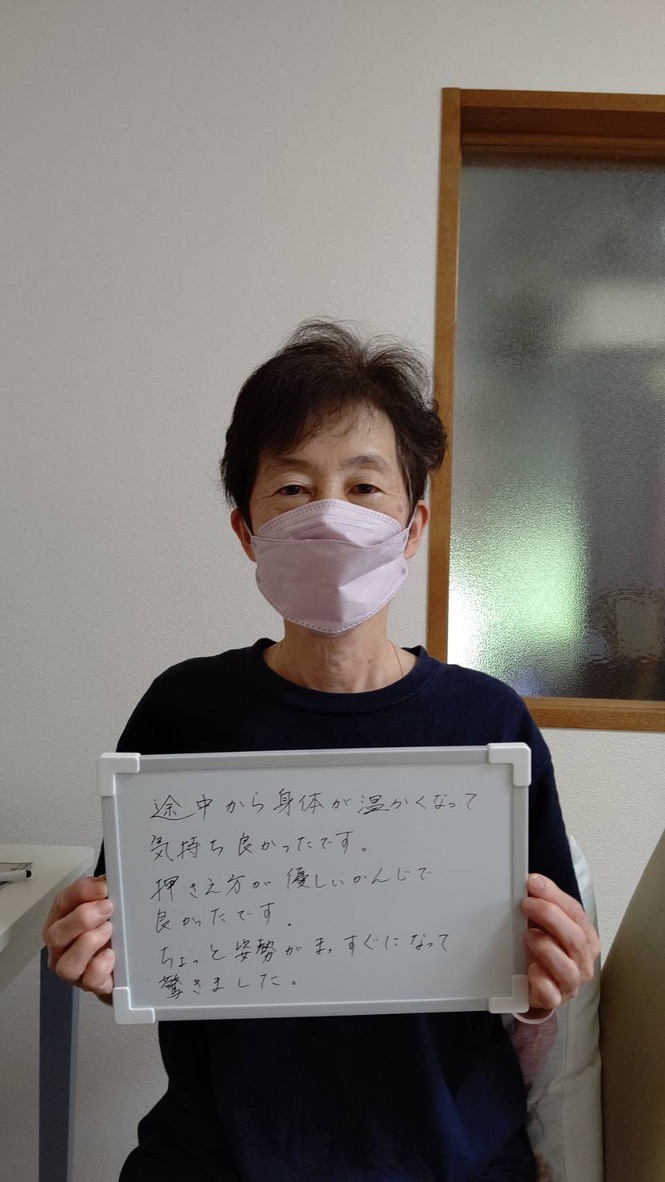 途中から身体が温かくなって
気持ち良かったです。
押さえ方が優しいかんじで
良かったです.
ちょっと姿勢がまっすぐになって
驚きました。